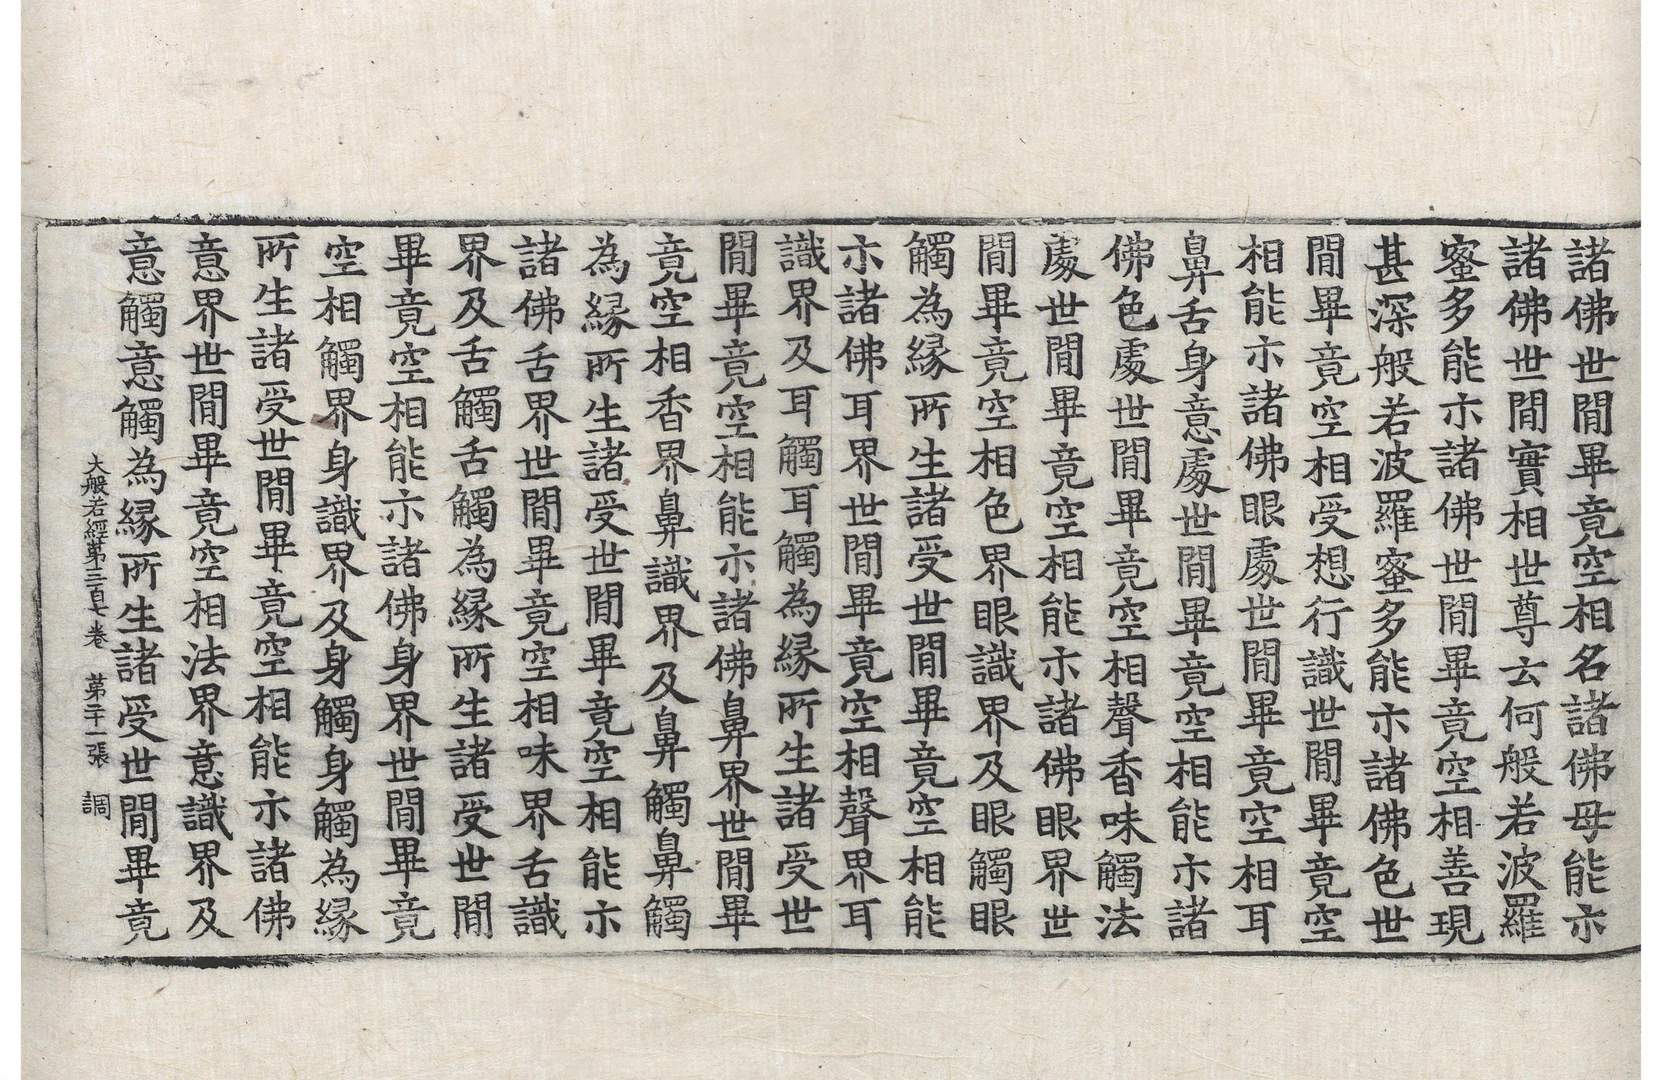 諸佛世間畢竟空相名諸佛母能示
諸佛世間實相世尊云何般若波羅
蜜多能示諸佛世間畢竟空相善現
甚深般若波羅蜜多能示諸佛色世
間畢竟空相受想行識世間畢竟空
相能示諸佛眼處世間畢竟空相耳
鼻舌身意處世間畢竟空相能示諸
佛色處世間畢竟空相聲香味觸法
處世間畢竟空相能示諸佛眼界世
間畢竟空相色界眼識界及眼觸眼
觸為縁所生諸受世間畢竟空相能
示諸佛耳界世間畢竟空相聲界耳
識界及耳觸耳觸為縁所生諸受世
間畢竟空相能示諸佛鼻界世間畢
竟空相香界鼻識界及鼻觸鼻觸
為縁所生諸受世間畢竟空相能示
諸佛舌界世間畢竟空相味界舌識
界及舌觸舌觸為縁所生諸受世間
畢竟空相能示諸佛身界世間畢竟
空相觸界身識界及身觸身觸為縁
所生諸受世間畢竟空相能示諸佛
意界世間畢竟空相法界意識界及
意觸意觸為縁所生諸受世間畢竟
大般若經第三百七卷 第二十一張 調